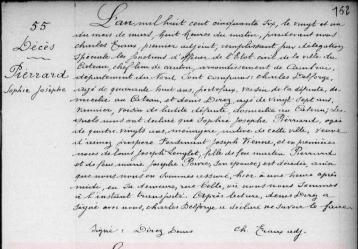 158
55
Décès
Pierrard
Sophie Josèphe
L'an mil huit cent cinquante six, le vingt et un
du mois de mars, huit heures du matin, pardevant nous
Charles Evans, premier adjoint, remplissant par délégation
spéciale les fonctions d'officier de l'état civil de la ville du
Cateau, chef lieu de canton, arrondissement de Cambrai,
département du Nord, sont comparus: Charles Delforge,
âgé de quarante huit ans, fossoyeur, voisin de la défunte, do-
micilié au Cateau, et Denis Direz, âgé de vingt sept ans,
voisin de ladite défunte, domicilié au Cateau, les-
quels nous ont déclaré que Sophie Josèphe Pierrard, âgée
de quatre vingts ans, ménagère, native de cette ville, veuve
Ferdinand Joseph et en premières
noces de Louis Joseph Langlet, fille de feu Martin Pierrard
et de feue Marie Josèphe son épouse, est décédée, ainsi
que nous nous en sommes assuré, hier à une heure après
midi, en sa demeure, rue Belle, où nous nous sommes
à l'instant transporté. Après lecture, Denis Direz a
signé avec nous, Charles Delforge a déclaré ne savoir le faire.
Signé: Direz Denis Ch. Evans adj.